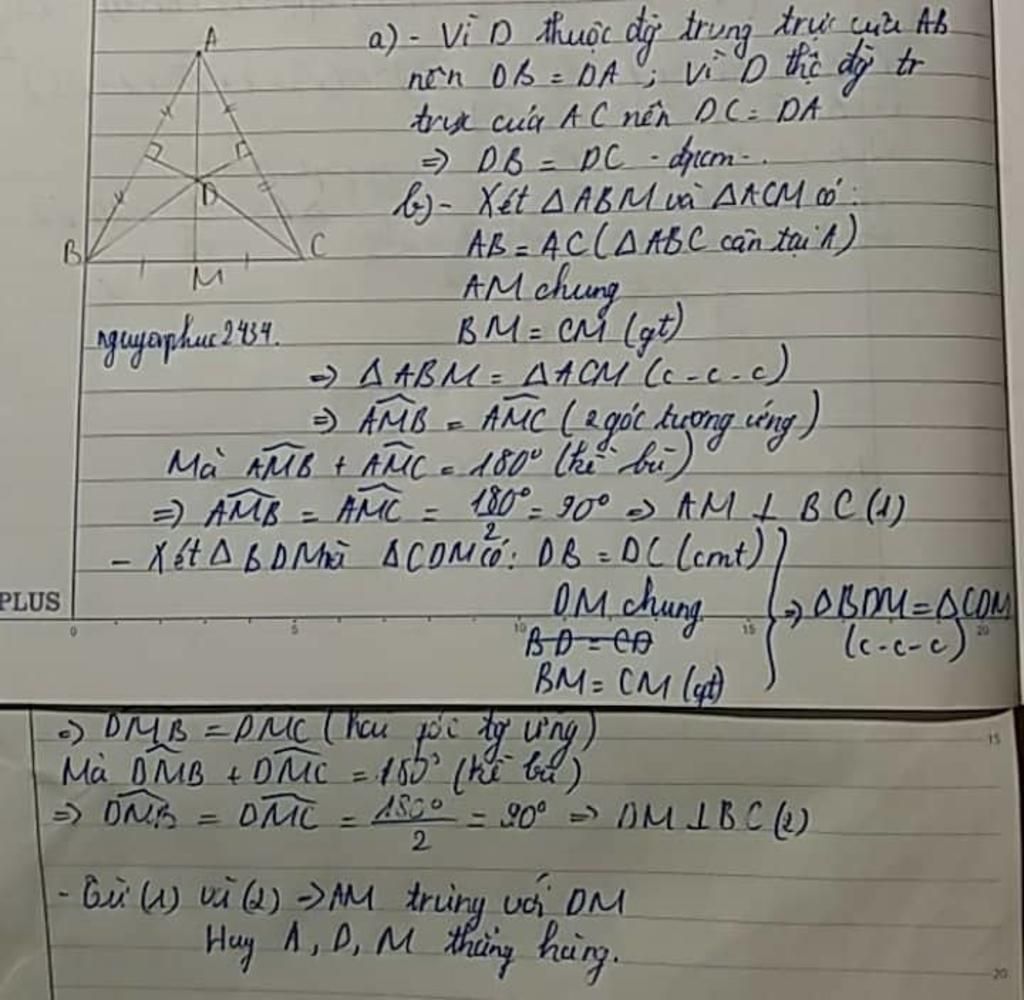 A
B
C
D
M
nguyenphuc2434.
a) - Vì D thuộc đg trung trực của AB
nên DB = DA ; Vì D thộc đg tr
trực của AC nên DC = DA
=> DB = DC - đpcm -.
b) - Xét ΔABM và ΔACM có:
AB = AC (ΔABC cân tại A)
AM chung
BM = CM (gt)
=> ΔABM = ΔACM (c-c-c)
=> \widehat{AMB} = \widehat{AMC} (2 góc tương ứng)
Mà \widehat{AMB} + \widehat{AMC} = 180° (kề bù)
=> \widehat{AMB} = \widehat{AMC} = \frac{180°}{2} = 90° => AM ⊥ BC (1)
- Xét ΔBDM và ΔCDM có: DB = DC (cmt)
DM chung
BD = CD
BM = CM (gt)
=> ΔBDM = ΔCDM
(c-c-c)
PLUS
0 5 10 15 20
=> \widehat{DMB} = \widehat{DMC} (hai góc tg ứng)
Mà \widehat{DMB} + \widehat{DMC} = 180° (kề bù)
=> \widehat{DMB} = \widehat{DMC} = \frac{180°}{2} = 90° => DM ⊥ BC (2)
- Từ (1) và (2) => AM trùng với DM
Hay A, D, M thẳng hàng.
15
20